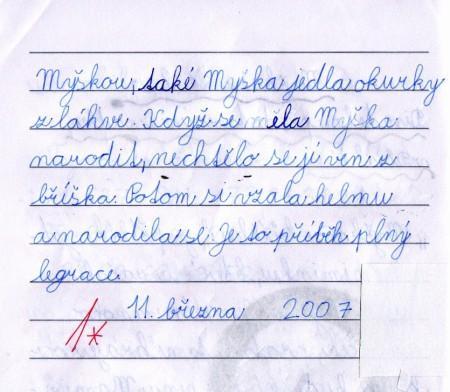 Myškou, také Myška jedla okurky
z láhve. Když se měla Myška
narodit, nechtělo se jí ven z
bříška. Potom si vzala helmu
a narodila se. Je to příběh plný
legrace.
11. března 2007
1*